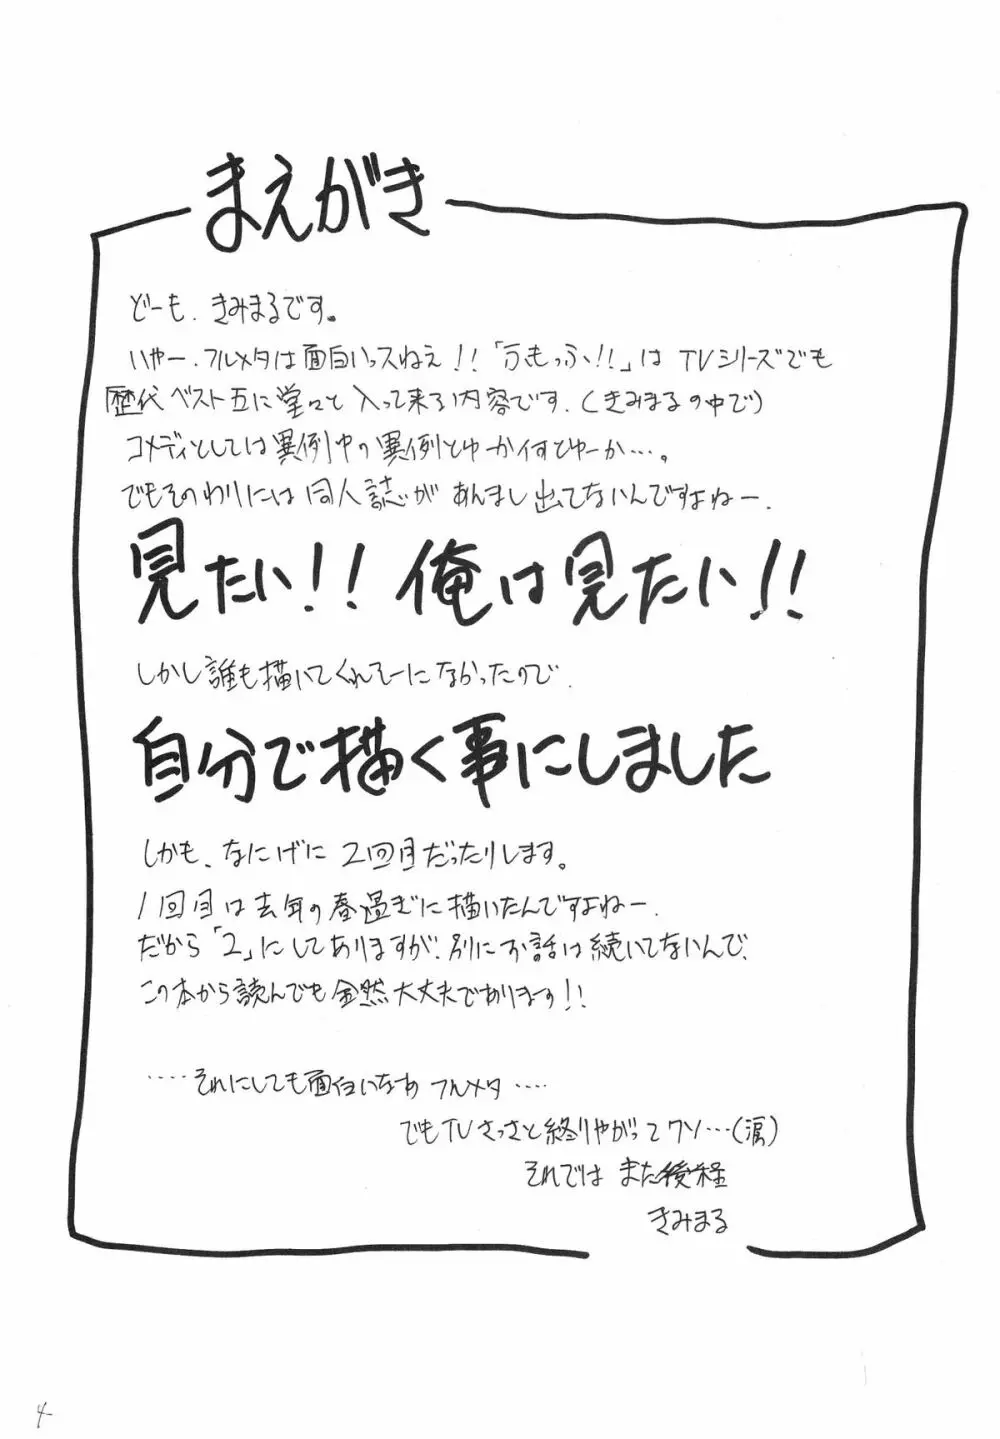 まえがき
どーも、きみまるです。
いやー、フルメタは面白いっスねえ!!「ふもっふ!!」はTVシリーズでも
歴代ベスト五に堂々と入って来る内容です、(きみまるの中で)
コメディとしては異例中の異例とゆーか何とゆーか…。
でもそのわりには同人誌があんまし出てないんですよねー、
見たい!!俺は見たい!!
しかし誰も描いてくれそーになかったので、
自分で描く事にしました
しかも、なにげに2回目だったりします。
1回目は去年の春過ぎに描いたんですよねー、
だから「2」にしてありますが、別にお話は続いてないんで、
この本から読んでも全然大丈夫であります!!
……それにしても面白いなあ フルメタ……
でもTVさっさと終りやがって クソ…(涙)
それでは また後程
きみまる
4